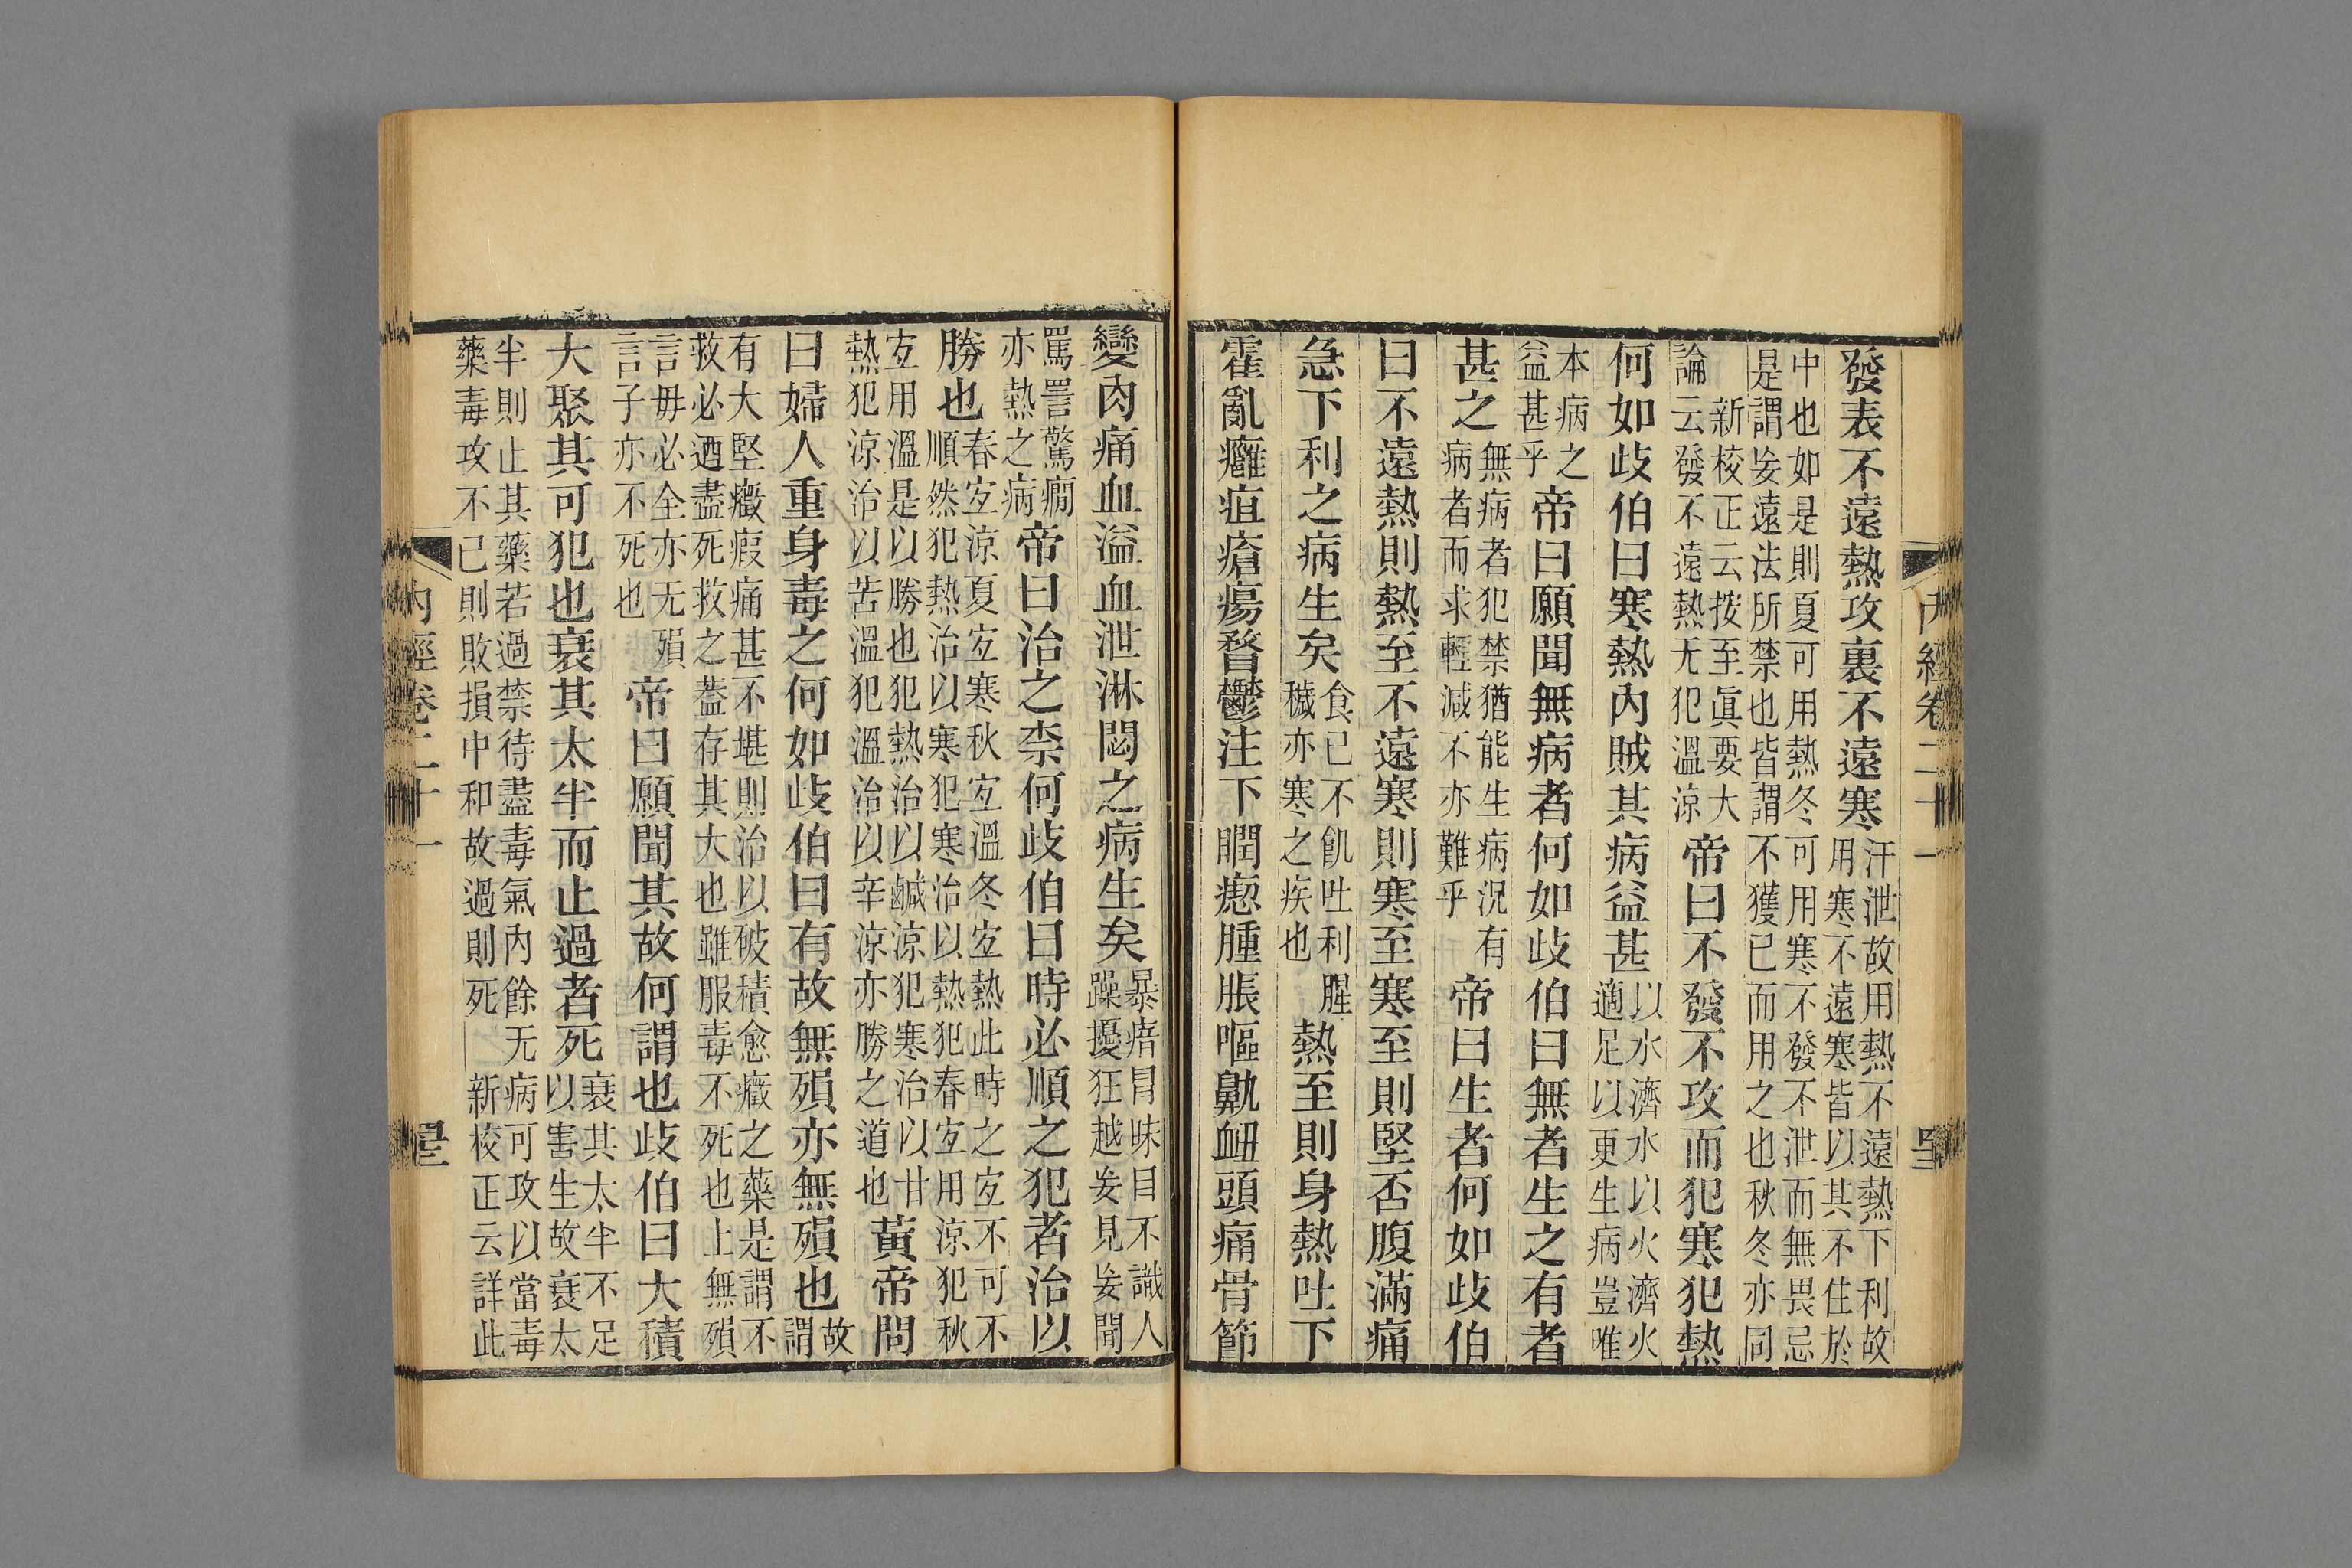 內經卷二十一
發表不遠熱攻裏不遠寒汗泄故用熱不遠熱下利故用寒不遠寒皆以其不住於
中也如是則夏可用熱冬可用寒不發不泄而無畏忌是謂妄遠法所禁也皆謂不獲已而用之也秋冬亦同
新校正云按至眞要大論云發不遠熱无犯溫涼帝曰不發不攻而犯寒犯熱
何如歧伯曰寒熱內賊其病益甚以水濟水以火濟火適足以更生病豈唯
本病之益甚乎帝曰願聞無病者何如歧伯曰無者生之有者
甚之無病者犯禁猶能生病況有病者而求輕減不亦難乎帝曰生者何如歧伯
曰不遠熱則熱至不遠寒則寒至寒至則堅否腹滿痛
急下利之病生矣食已不飢吐利腥穢亦寒之疾也熱至則身熱吐下
霍亂癰疽瘡瘍瞀鬱注下瞤瘛腫脹嘔鼽衄頭痛骨節
變肉痛血溢血泄淋閟之病生矣暴瘖冒昧目不識人躁擾狂越妄見妄聞
罵詈驚癇亦熱之病帝曰治之柰何歧伯曰時必順之犯者治以
勝也春宐涼夏宐寒秋宐溫冬宐熱此時之宐不可不順然犯熱治以寒犯寒治以熱犯春宐用涼犯秋
宐用溫是以勝也犯熱治以鹹涼犯寒治以甘熱犯涼治以苦溫犯溫治以辛涼亦勝之道也黃帝問
曰婦人重身毒之何如歧伯曰有故無殞亦無殞也故謂
有大堅癥瘕痛甚不堪則治以破積愈癥之藥是謂不救必迺盡死救之蓋存其大也雖服毒不死也上無殞
言毋必全亦无殞言子亦不死也帝曰願聞其故何謂也歧伯曰大積
大聚其可犯也衰其太半而止過者死衰其太半不足以害生故衰太
半則止其藥若過禁待盡毒氣內餘无病可攻以當毒藥毒攻不已則敗損中和故過則死新校正云詳此
內經卷二十一